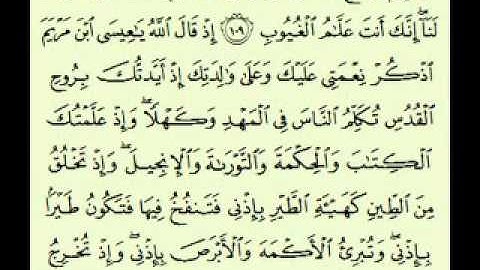 لَنَآ ۖ إِنَّكَ أَنتَ عَلَّٰمُ ٱلْغُيُوبِ ١٠٩ إِذْ قَالَ ٱللَّهُ يَٰعِيسَى ٱبْنَ مَرْيَمَ
ٱذْكُرْ نِعْمَتِى عَلَيْكَ وَعَلَىٰ وَٰلِدَتِكَ إِذْ أَيَّدتُّكَ بِرُوحِ
ٱلْقُدُسِ تُكَلِّمُ ٱلنَّاسَ فِى ٱلْمَهْدِ وَكَهْلًا ۖ وَإِذْ عَلَّمْتُكَ
ٱلْكِتَٰبَ وَٱلْحِكْمَةَ وَٱلتَّوْرَىٰةَ وَٱلْإِنجِيلَ ۖ وَإِذْ تَخْلُقُ
مِنَ ٱلطِّينِ كَهَيْـَٔةِ ٱلطَّيْرِ بِإِذْنِى فَتَنفُخُ فِيهَا فَتَكُونُ طَيْرًۢا
بِإِذْنِى ۖ وَتُبْرِئُ ٱلْأَكْمَهَ وَٱلْأَبْرَصَ بِإِذْنِى ۖ وَإِذْ تُخْرِجُ